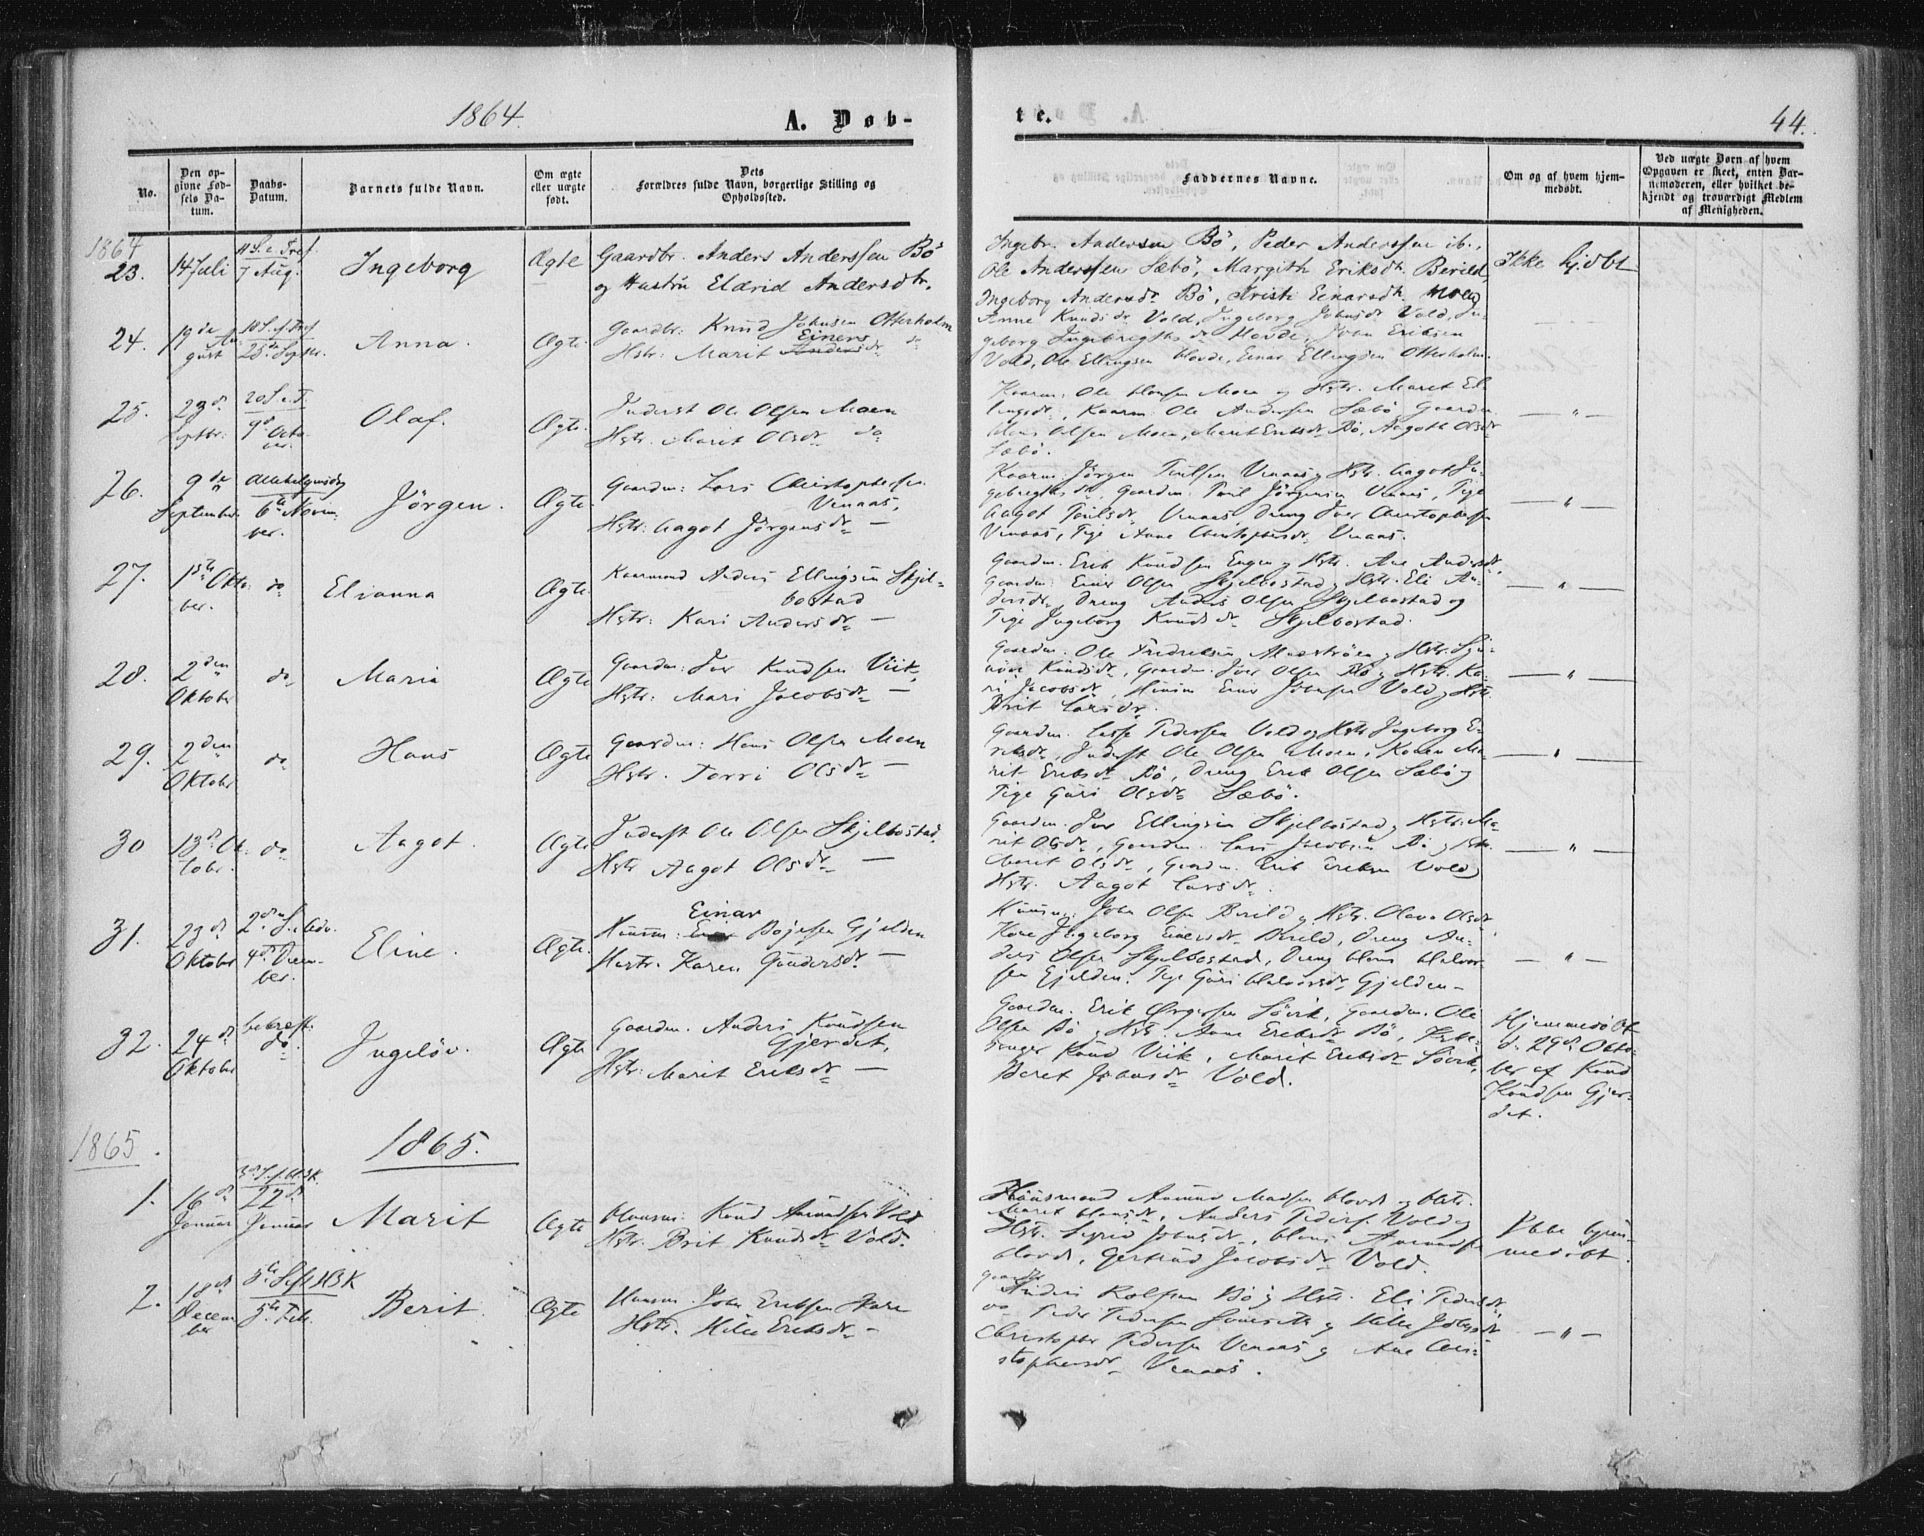 1864. A. Døb-
te. 44.
No.
Den op-
givne Fød-
sels Da-
tum.
Daabs-
Datum.
Barnets fulde Navn.
Om ægte
eller uægte
født.
Dets
Forældres fulde Navn, borgerlige Stilling og
Opholdssted.
Faddernes Navne.
Om og af hvem hjem-
medøbt.
Ved uægte Børn af hvem
Opgaven er skeet, enten Bar-
nemoderen, eller hvilket be-
kjendt og troværdigt Medlem
af Menigheden.
1864
23.
14 Juli
11 S. e. Tref.
7 Aug.
Ingeborg
Ægte
Gaardbr. Anders Anderssen Bö
og Hustru Eldrid Andersdtr.
Ingebr. Andersen Bö, Peder Anderssen ib.,
Ole Anderssen Sæbö, Margith Eriksdtr. Berild,
Ingeborg Andersdr Bö, Kristi Einarsdtr. Moen
Ikke hjdbt
24.
19de Au-
gust
18 S. e. Tref
25de Septr.
Anna.
Ægte.
Gaardbr: Knud Johnsen Otterholm
Einers
Hstr: Marit Andersdr do
Anne Knudsdr Vold, Ingeborg Johnsdr Vold, In-
geborg Ingebrigtsdr Hovde, John Eriksen
Vold, Ole Ellingsen Hovde, Einar Ellingsen Otterholm.
25.
23d
Septbr.
20 S. e. T.
9d Octo-
ber.
Olaf.
Ægte.
Inderst Ole Olsen Moen
Hstr. Marit Olsdr do
Kaarm: Ole Hansen Moen og Hstr. Maret El-
lingsdr, Kaarm: Ole Andersen Sæbö, Gaardm.
Hans Olsen Moen, Marit Eriksdr Bö, Aagoth Olsdr
Sæbö.
— " —
26.
9de
September
Allehelgensdag
6te Novem-
ber.
Jörgen.
Ægte.
Gaardm: Lars Christophersen
Venaas,
Hstr: Aagot Jörgensdr —
Kaarm: Jörgen Poulsen Venaas og Hstr. Aagot In-
gebrigtsdr, Gaardm. Poul Jörgensen Venaas, Pige
Aagot Poulsdr Venaas, Dreng Iver Christophersen
Venaas, Pige Anne Christophersdr Venaas.
— " —
27.
1ste Okto-
ber.
do
Elianna
Ægte.
Kaarmand Anders Ellingsen Skjel-
bostad
Hstr: Kari Andersdr —
Gaardm. Erik Knudsen Engen og Hstr. Ane Andersdr,
Gaardm: Einer Olsen Skjelbostad og Hstr. Eli An-
dersdr, Dreng Anders Olsen Skjelbostad og
Pige Ingeborg Knudsdr Skjelbostad.
— " —
28.
2den
Oktober
do
Maria
Ægte
Gaardm: Iver Knudsen Viik,
Hstr: Mari Jacobsdr —
Gaardm. Ole Fredriksen og Hstr. Syn-
növe Knudsdr, Gaardm. Iver Olsen Bö og Hstr. Ka-
ri Jacobsdr, Einer Johnsen Vold og Hstr.
Brit Larsdr.
— " —
29.
2den
Oktober
do
Hans
Ægte
Gaardm: Hans Olsen Moen
Hstr. Torri Olsdr —
Gaardm. Lasse Pedersen Vold og Hstr Ingeborg E-
riksdr, Inderst Ole Olsen Moen, Konen Ma-
rit Eriksdr Bö, Dreng Erik Olsen Sæbö og
Pige Guri Olsdr Sæbö.
— " —
30
13d Ok-
tober.
do
Aagot.
Ægte
Inderst Ole Olsen Skjelbostad.
Hstr Aagot Olsdr —
Gaardm. Iver Ellingsen Skjelbostad og Hstr. Ma-
rit Olsdr, Gaardm. Lars Jacobsen Bö og Hstr.
Marit Olsdr, Gaardm. Erik Eriksen Vold og
Hstr. Aagot Larsdr.
— " —
31.
23d
Oktober
2den S. i Adv.
4d Decem-
ber.
Eline.
Ægte.
Einar
Huusm: Bojesen Gjelden
Hustr. Karen Gundersdr. —
Huusm: John Olsen Berild og Hstr. Olava Olsdr
Kone Ingeborg Einersdr Berild, Dreng An-
ders Olsen Skjelbostad, Dreng Hans Halvor-
sen Gjelden. Pige Guri Halvorsdr Gjelden —
— " —
32.
24d
Oktober
bekræft.
do
Ingelöv.
Ægte
Gaardm. Anders Knudsen
Gjerdet,
Hstr: Marit Eriksdr —
Gaardm. Erik Ørgersen Sövik, Gaardm. Ole
Olsen Bö og Hstr. Anne Eriksdr Bö, Kirke-
sanger Knud Viik, Marit Eriksdr Sövik,
Beret Johnsdr Vold.
Hjemmedöbt
d. 29d Okto-
ber af Knud
Knudsen Gjer-
det.
1865.
1865.
1.
16d
Januar
3d S. e. H. 3 K.
22d
Januar
Marit
Ægte
Huusm: Knud Amundsen Vold
Hstr. Brit Knudsdr Vold.
Huusmand Amund Madsen Hovde og Hstr.
Marit Hansdr, Anders Peders. Vold og
Hstr. Sigrid Johnsdr, Hans Amundsen
Hovde, Gertrud Jacobsdr Vold.
Ikke hjem-
medöbt.
2.
18d
Decem-
ber
5te S. e. H3K
5te Feb.
Berit.
Ægte
Huusm. John Eriksen
Hstr. Eriksdr —
Gaardm
Anders Rolfsen Bö og Hstr. Eli Pedersdr
Peder Pedersen og
Christopher Pedersen Venaas og Ane Chri-
stophersdr Venaas.
— " —